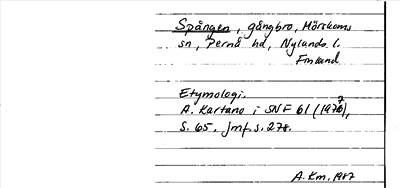 Spången, gångbro, Mörskoms
sn, Pernå hd, Nylands l.
Finland
Etymologi.
A. Kartano i SNF 61 (1977),
s. 65, jmf. s. 278.
A. Km. 1987